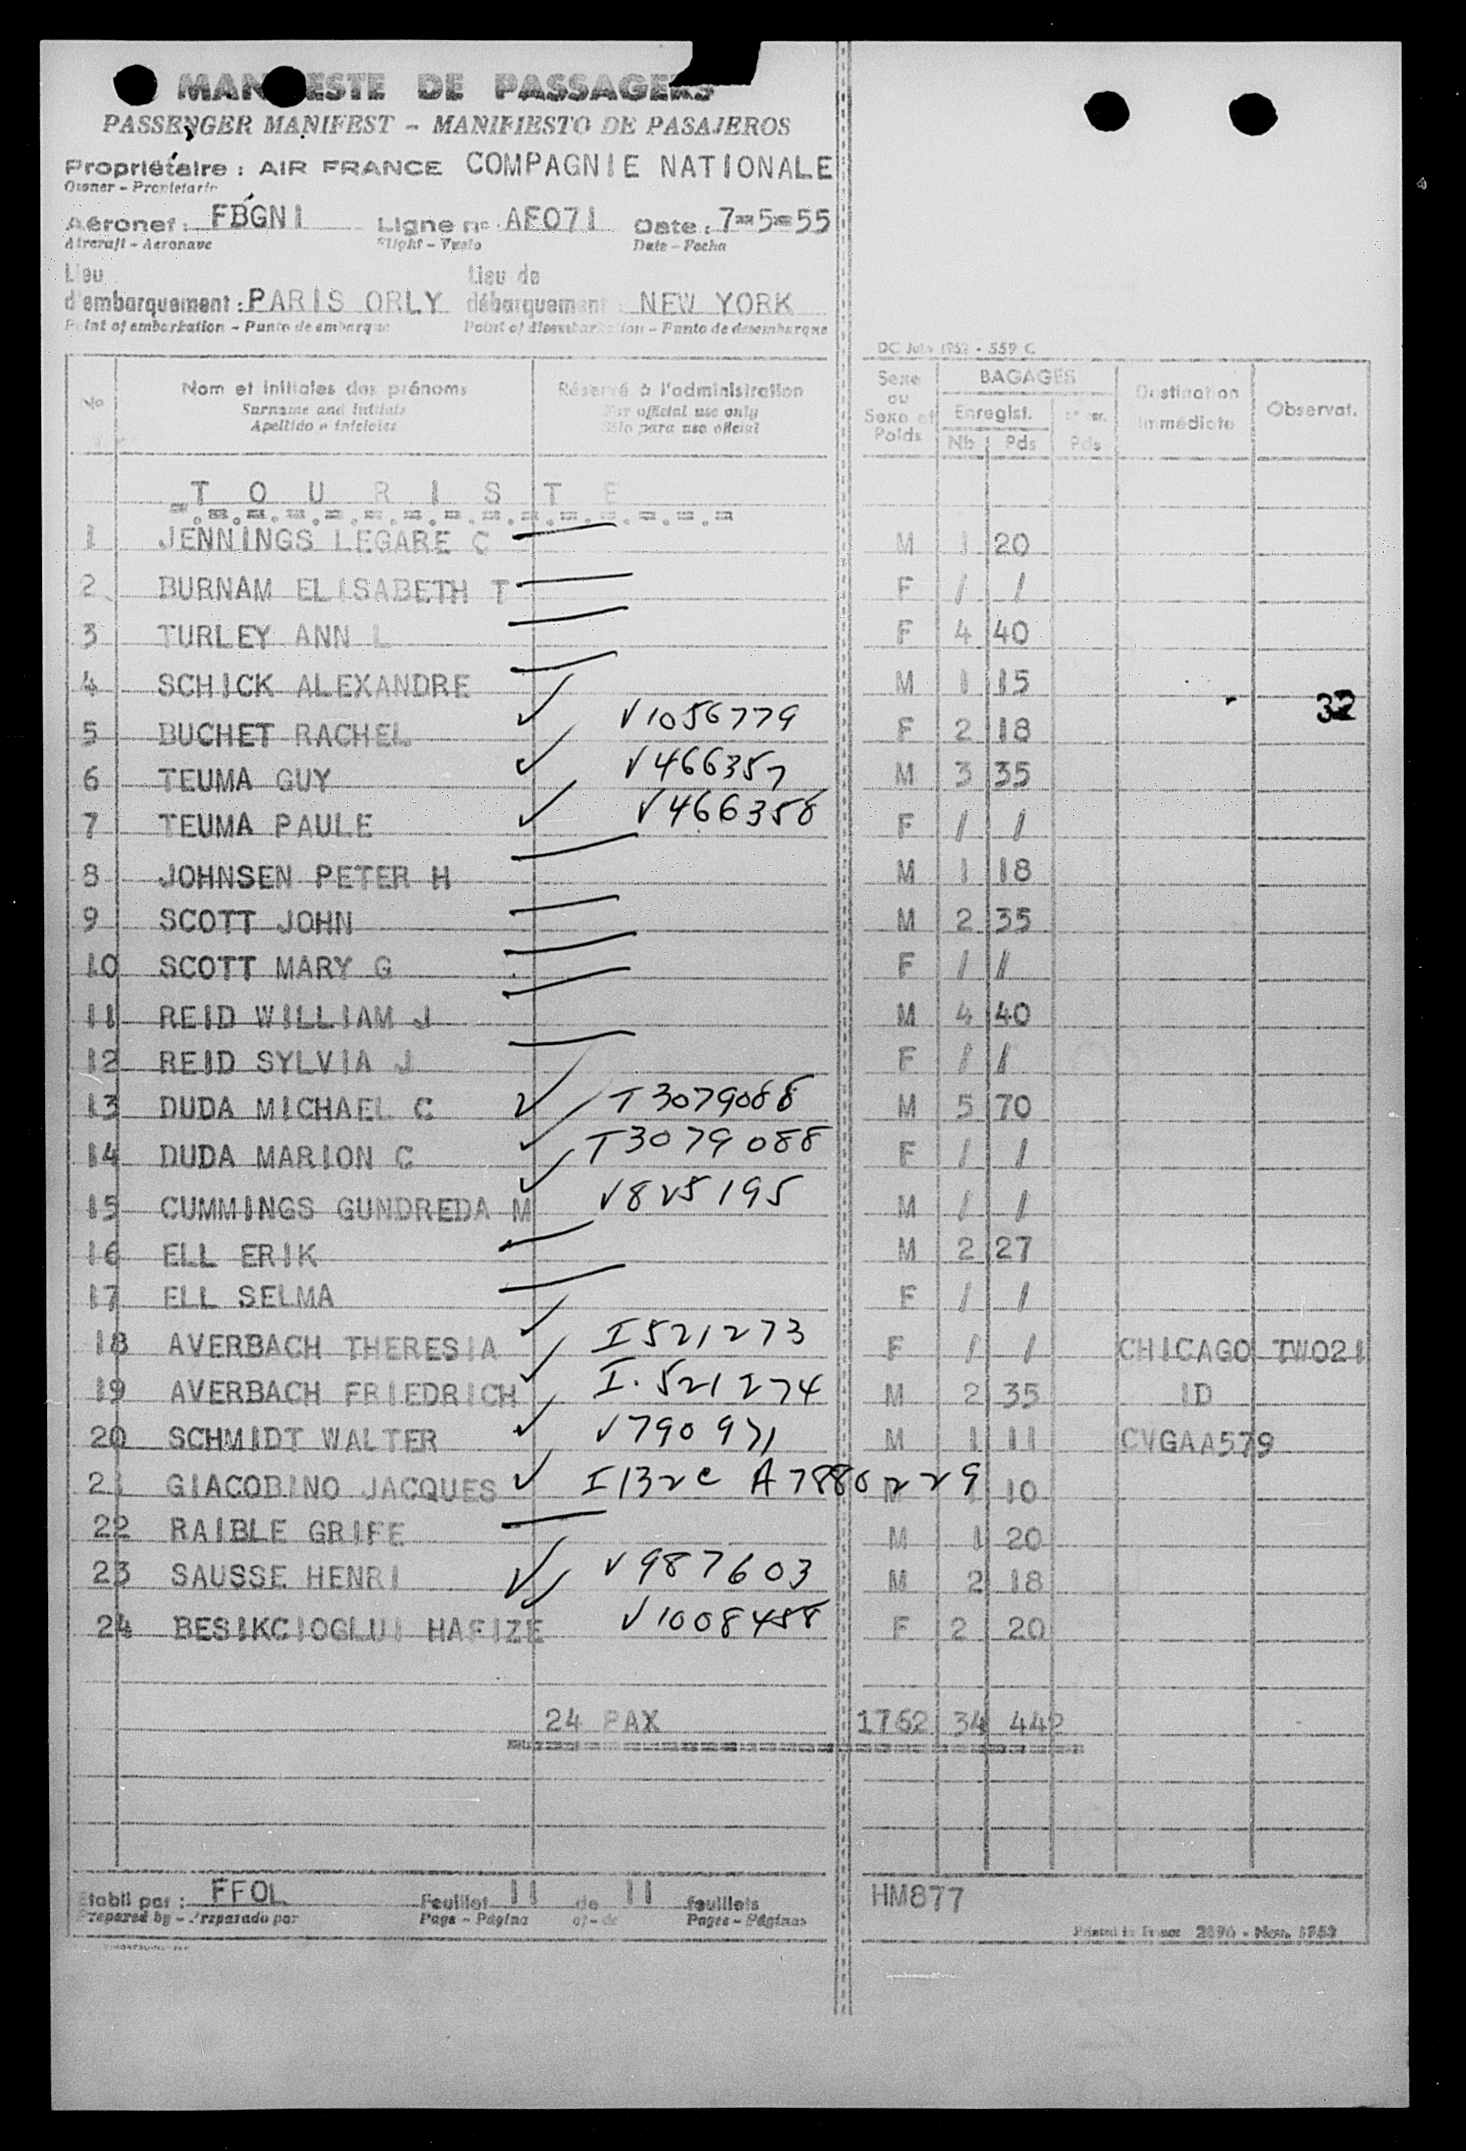 MANIFESTE DE PASSAGERS
PASSENGER MANIFEST - MANIFIESTO DE PASAJEROS
Propriétaire : AIR FRANCE COMPAGNIE NATIONALE
Owner - Propietario
Aéronef : FBGNI Ligne n° AF071 Date : 7-5-55
Aircraft - Aeronave Flight - Vuelo Date - Fecha
Lieu d'embarquement : PARIS ORLY Lieu de débarquement : NEW YORK
Point of embarkation - Punto de embarque Point of disembarkation - Punto de desembarque
No Nom et initiales des prénoms Réservé à l'administration Sexe ou Sexe et Poids BAGAGES Destination immédiate Observat.
Surname and initials For official use only Enregist.
Apellido e iniciales Sólo para uso oficial Nb Pds Pds
T O U R I S T E
1 JENNINGS LEGARE C M 1 20
2 BURNAM ELISABETH T F / /
3 TURLEY ANN L F 4 40
4 SCHICK ALEXANDRE M 1 15
32
5 BUCHET RACHEL V1056779 F 2 18
6 TEUMA GUY V466357 M 3 35
7 TEUMA PAULE V466358 F / /
8 JOHNSEN PETER H M 1 18
9 SCOTT JOHN M 2 35
10 SCOTT MARY G F / /
11 REID WILLIAM J M 4 40
12 REID SYLVIA J F / /
13 DUDA MICHAEL C T3079088 M 5 70
14 DUDA MARION C T3079088 F / /
15 CUMMINGS GUNDREDA M V825195 M / /
16 ELL ERIK M 2 27
17 ELL SELMA F / /
18 AVERBACH THERESIA I521273 F / / CHICAGO TW021
19 AVERBACH FRIEDRICH I.521274 M 2 35 ID
20 SCHMIDT WALTER V790971 M 1 11 CVGAA579
21 GIACOBINO JACQUES I132c A7880229 M 1 10
22 RAIBLE GRIFE M 1 20
23 SAUSSE HENRI V987603 M 2 18
24 BESIKCIOGLUI HAFIZE V1008488 F 2 20
24 PAX 1762 34 442
Etabli par : FFOL Feuillet 11 de 11 feuillets HM877
Prepared by - Preparado por Page - Página of - de Pages - Páginas Printed in France